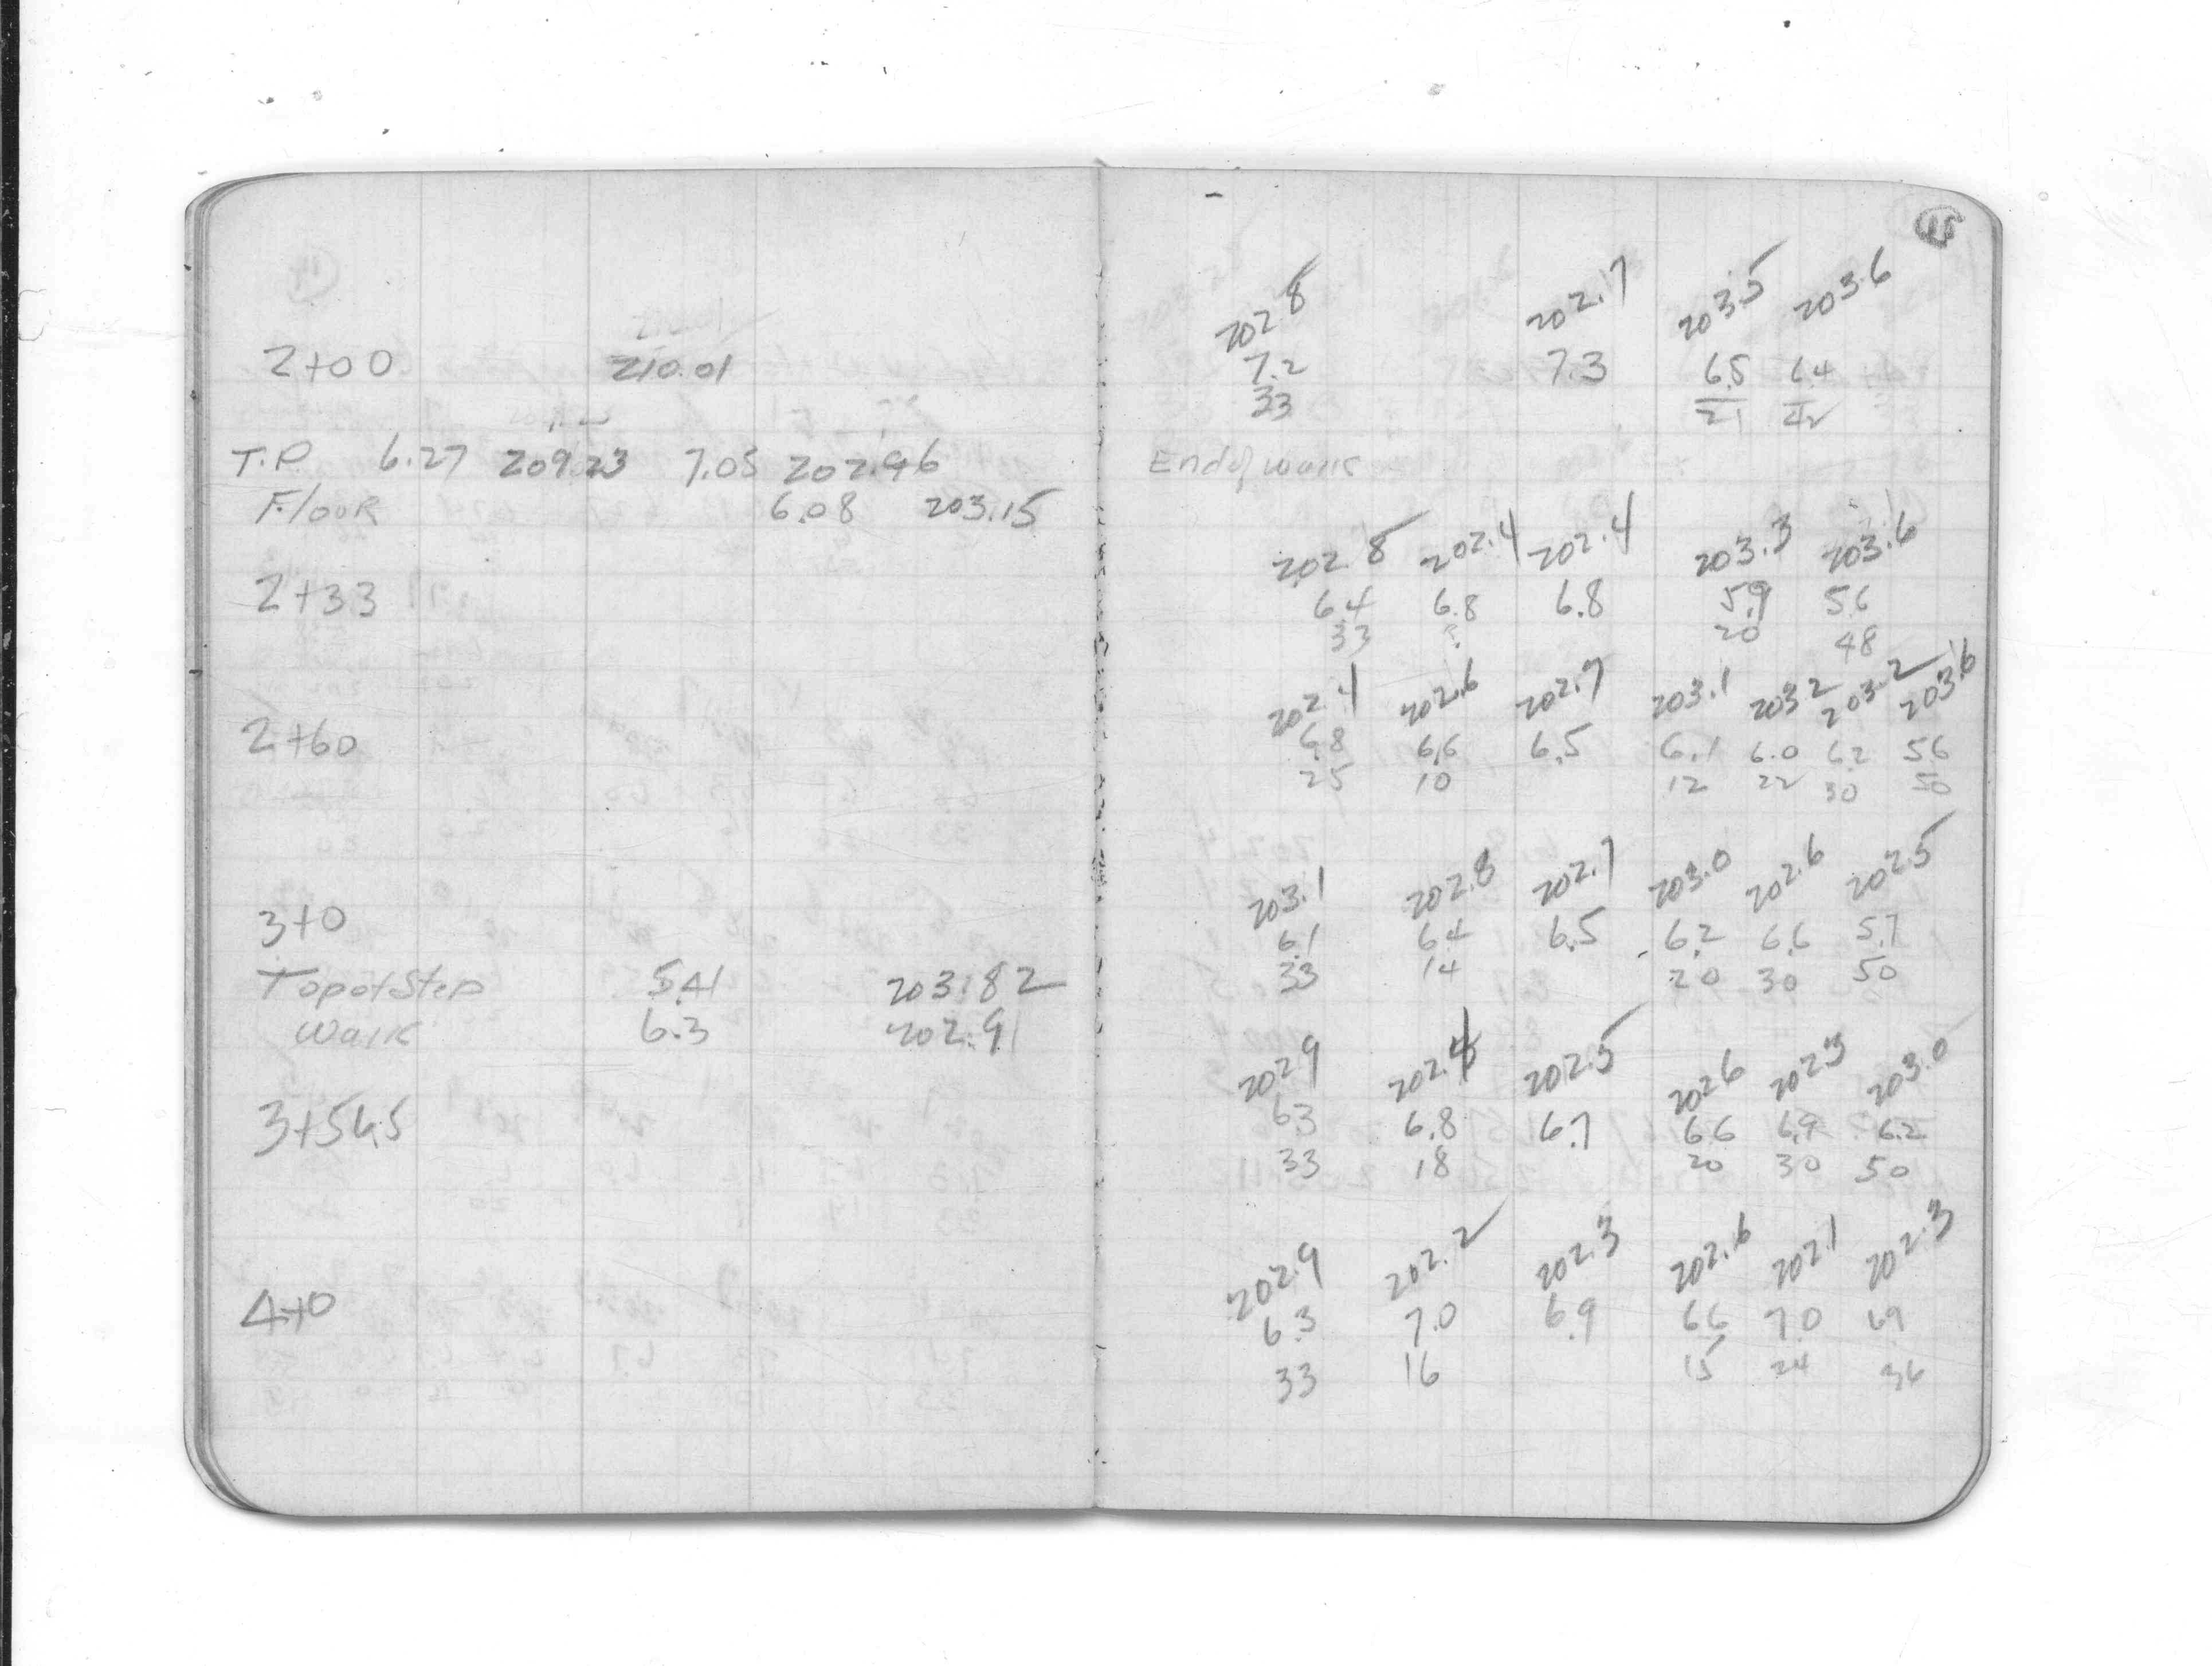 15
202.8 202.7 203.5 203.6
2+00 210.01 7.2 7.3 6.5 6.4
33 21 42
T.P. 6.27 209.23 7.05 202.96 End of walk
Floor 6.08 203.15
202.8 202.4 202.4 203.3 203.6
2+33 6.4 6.8 6.8 5.9 5.6
33 20 48
202.4 202.6 202.7 203.1 203.2 203.2 203.6
2+60 6.8 6.6 6.5 6.1 6.0 6.2 5.6
25 10 12 22 30 50
203.1 202.8 202.7 203.0 202.6 202.5
3+0 6.1 6.4 6.5 6.2 6.6 5.7
33 14 20 30 50
Top of Step 5.41 203.82
Walk 6.3 202.9
202.9 202.4 202.5 202.6 202.3 203.0
3+56.5 6.3 6.8 6.7 6.6 6.9 6.2
33 18 20 30 50
202.9 202.2 202.3 202.6 202.1 202.3
4+0 6.3 7.0 6.9 6.6 7.0 6.9
33 16 15 24 36